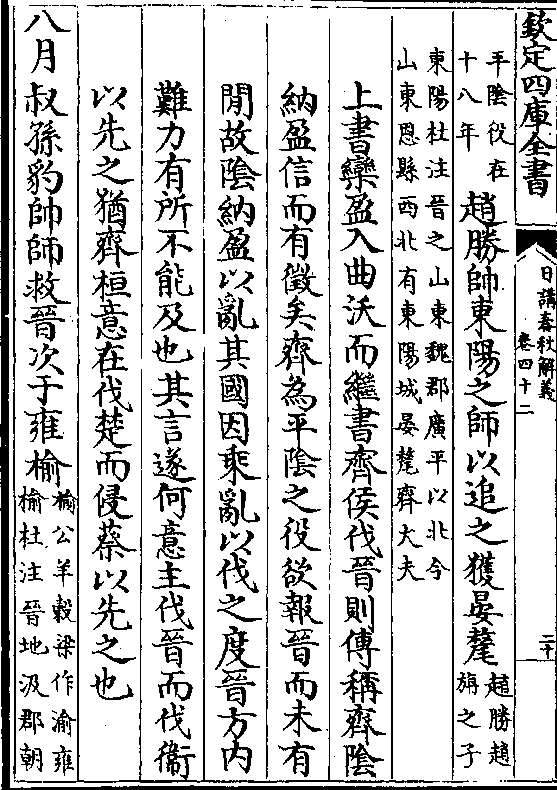 欽定四庫全書
日講春秋解義
卷四十二
二十
平陰役在
十八年
趙勝帥東陽之師以追之獲晏氂
趙勝趙
旃之子
東陽杜注晉之山東魏郡廣平以北今
山東恩縣西北有東陽城晏氂齊大夫
上書欒盈入曲沃而繼書齊侯伐晉則傳稱齊陰
納盈信而有徵矣齊為平陰之役欲報晉而未有
閒故陰納盈以亂其國因乘亂以伐之度晉方内
難力有所不能及也其言遂何意主伐晉而伐衞
以先之猶齊桓意在伐楚而侵蔡以先之也
八月叔孫豹帥師救晉次于雍榆
榆公羊榖梁作渝雍
榆杜注晉地汲郡朝